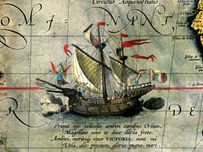 Circulus Aequinoctialis
Prima ego velivolis ambivi cursibus Orbem,
Magellane novo te duce ducta freto.
Ambivi, meritoq; vocor VICTORIA: sunt mi
Vela, alæ; precium, gloria; pugna, mare.